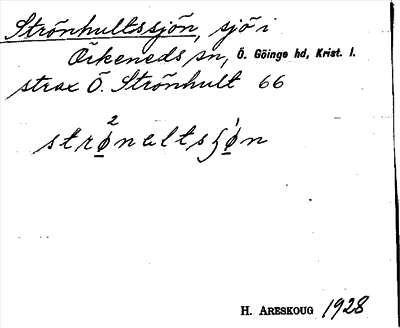 Strönhultssjön, sjö i
Örkeneds sn, Ö. Göinge hd, Krist. l.
strax Ö. Strönhult 66
strø²nultsʃø¹n
H. ARESKOUG 1928